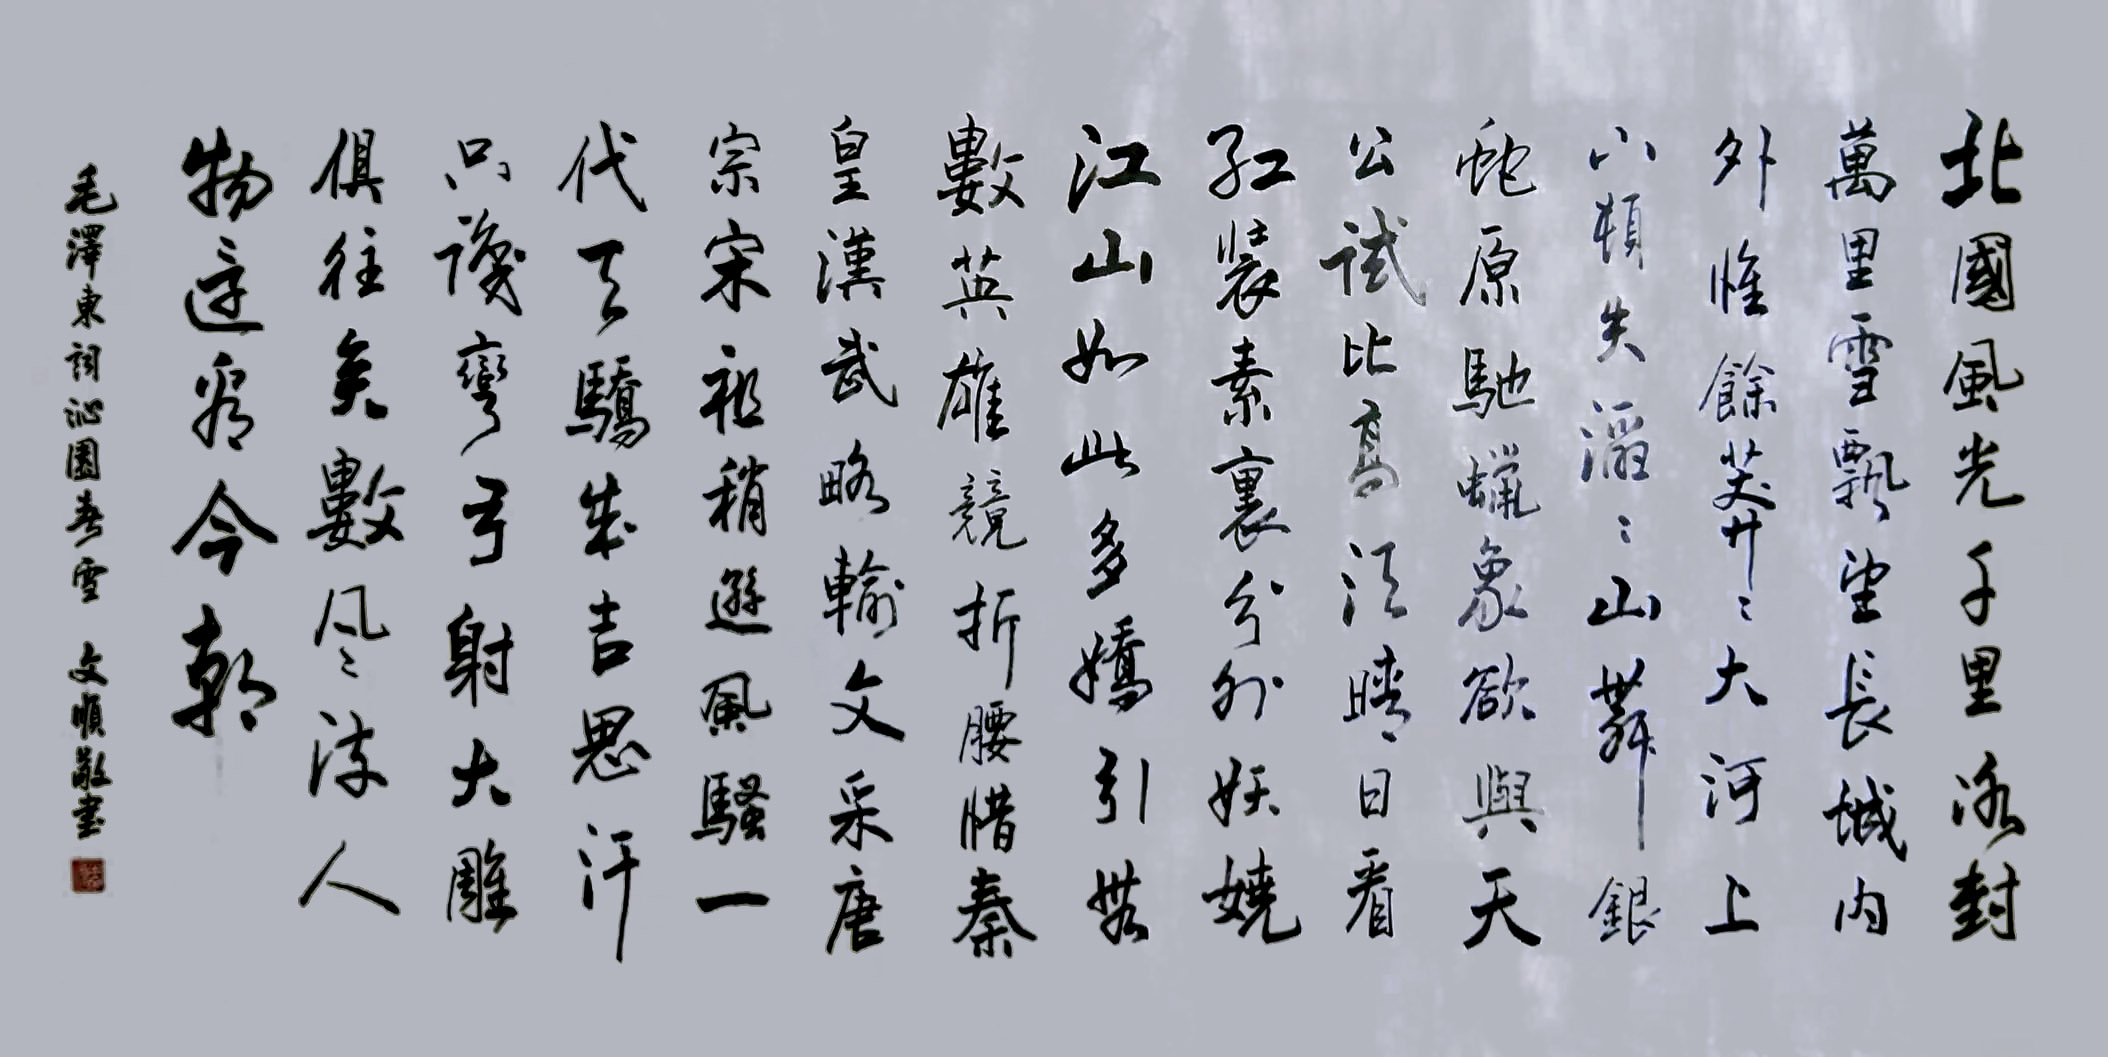 北國風光千里冰封
萬里雪飄望長城內
外惟餘莽〻大河上
下頓失滔〻山舞銀
蛇原馳蠟象欲與天
公試比高須晴日看
紅裝素裹分外妖嬈
江山如此多嬌引無
數英雄競折腰惜秦
皇漢武略輸文采唐
宗宋祖稍遜風騷一
代天驕成吉思汗
只識彎弓射大雕
俱往矣數风〻流人
物還看今朝
毛澤東詞沁園春雪 文順敬書